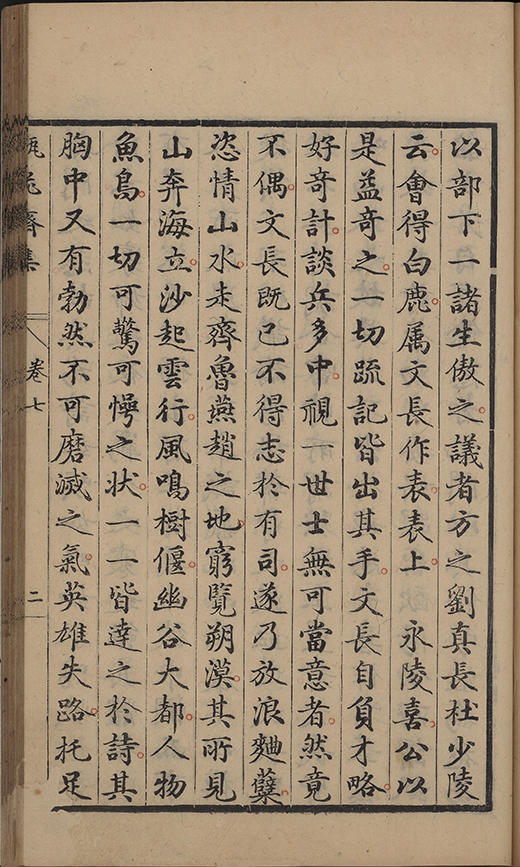 以部下一諸生傲之議者方之劉真長杜少陵
云會得白鹿属文長作表表上 永陵喜公以
是益奇之一切疏記皆出其手文長自負才略
好奇計談兵多中視一世士無可當意者然竟
不偶文長既已不得志於有司遂乃放浪麯蘖
恣情山水走齊魯燕趙之地窮覽朔漠其所見
山奔海立沙起雲行風鳴樹偃幽谷大都人物
魚鳥一切可驚可愕之狀一一皆達之於詩其
胸中又有勃然不可磨滅之氣英雄失路托足
瓶花齋集 卷七 二